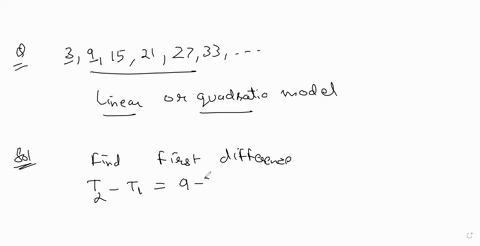 Q 3, 9, 15, 21, 27, 33, ...
Linear or quadratic model
Sol Find first difference
T₂ - T₁ = 9 -